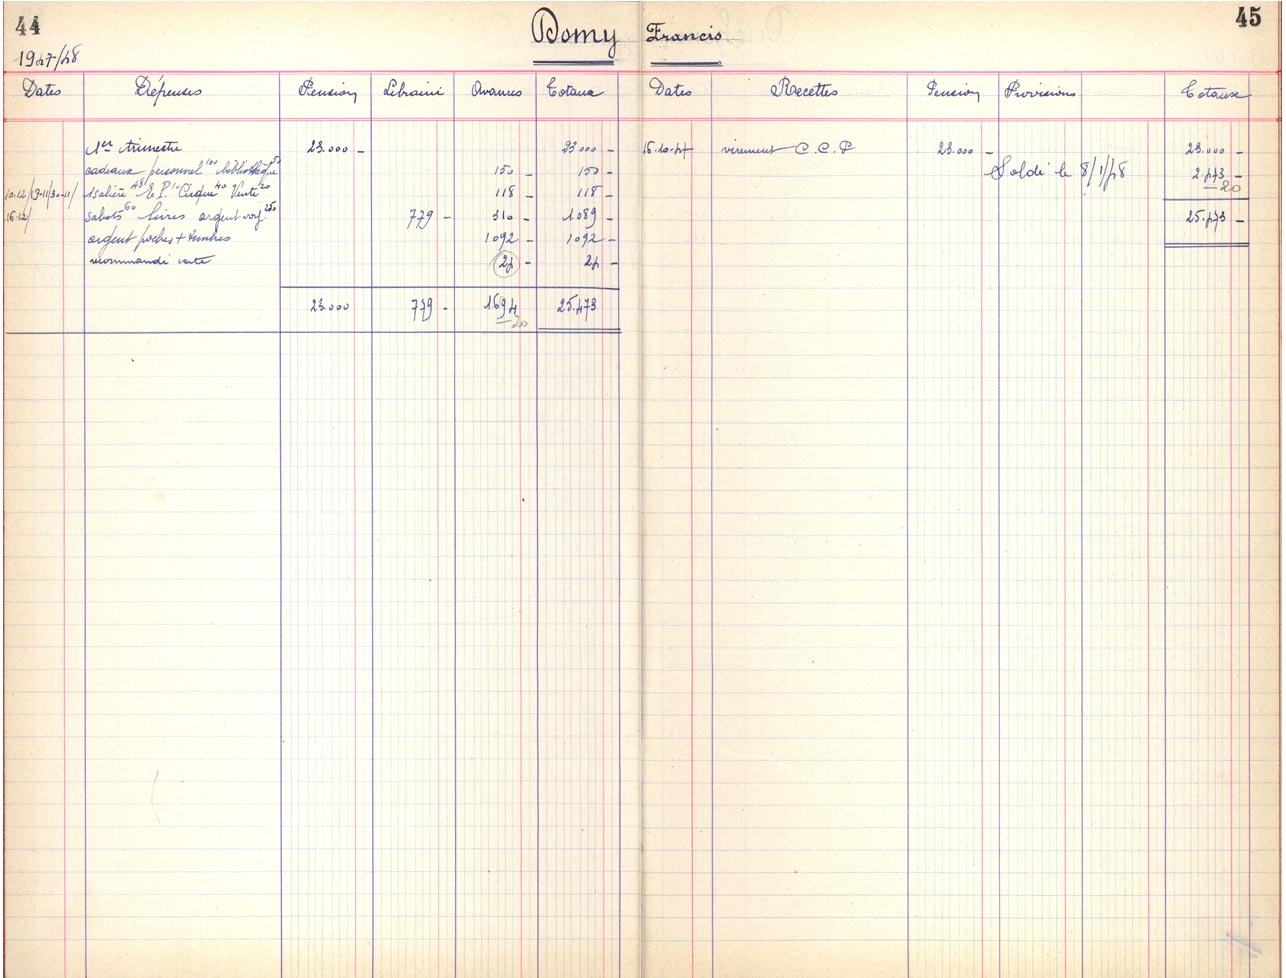 44
45
Domy Francis
1947/48
Dates Dépenses Pension Librairie Avances Totaux Dates Recettes Pension Provisions Totaux
1er trimestre 23.000 - 23.000 - 16.10.47 virement C.C.P 23.000 - 23.000 -
cadeaux personnel 100 bibliothèque 50 150 - 150 - Soldé le 8/1/48 2.473 -
20
10.12/19-11/30-11/ 1 salière 48 E.P. 10 Cirque 40 Vente 20 118 - 118 -
16.12/ sabots 60 livres argent voy. 250 779 - 310 - 1089 - 25.473 -
argent poches + timbres 1092 - 1092 -
recommandé carte 24 - 24 -
23.000 779 - 1694 25.473
20